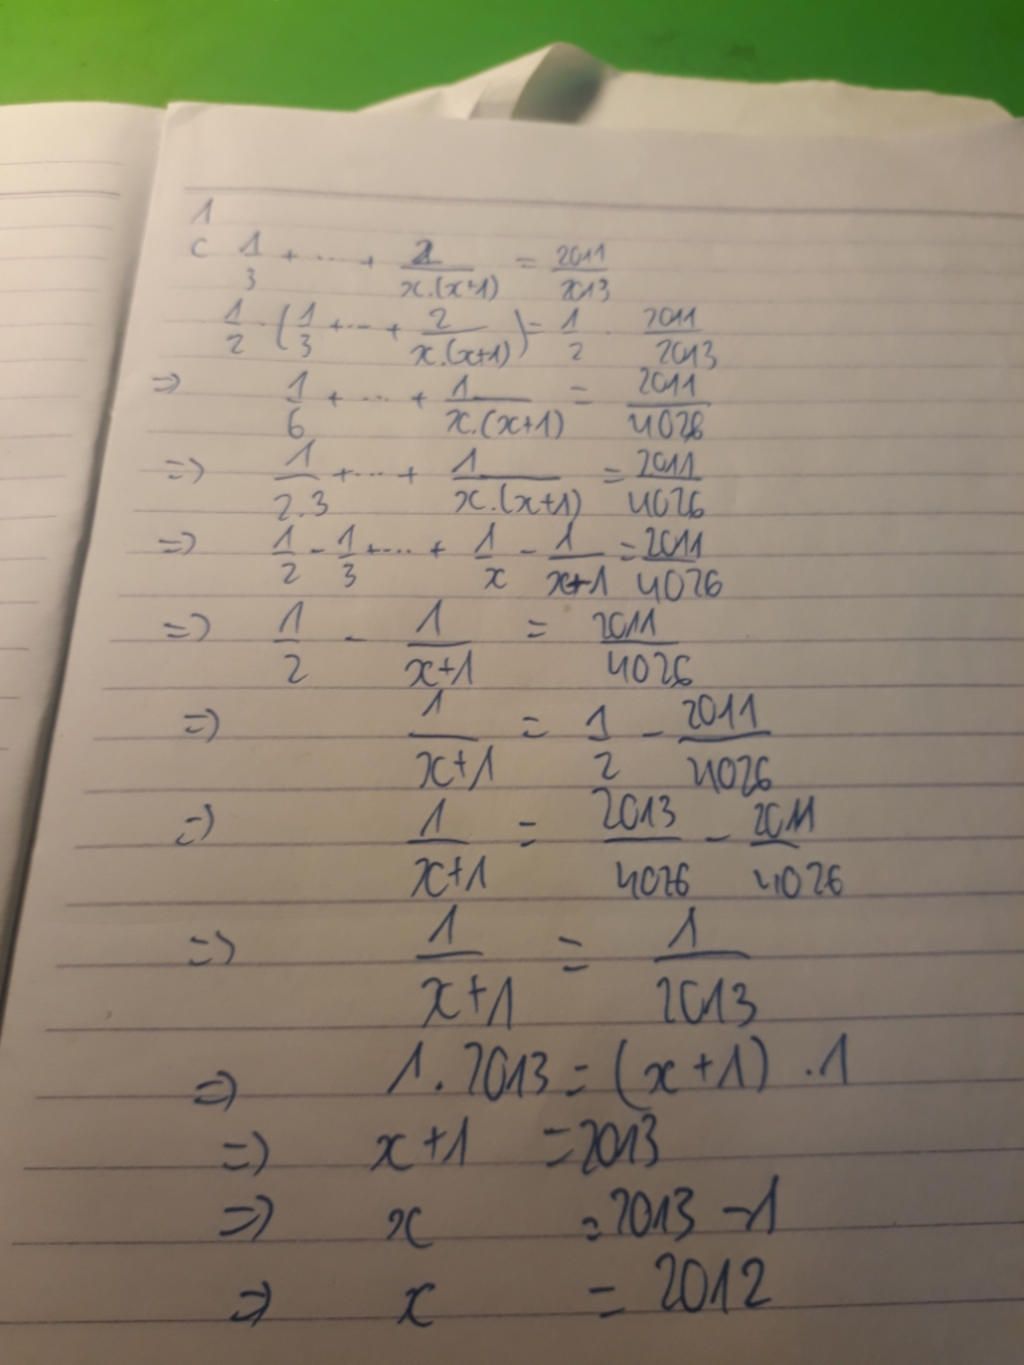 1
c 1/3 + ... + 2/x.(x+1) = 2011/2013
1/2 . (1/3 + ... + 2/x.(x+1)) = 1/2 . 2011/2013
=> 1/6 + ... + 1/x.(x+1) = 2011/4026
=> 1/2.3 + ... + 1/x.(x+1) = 2011/4026
=> 1/2 - 1/3 + .... + 1/x - 1/x+1 = 2011/4026
=> 1/2 - 1/x+1 = 2011/4026
=> 1/x+1 = 1/2 - 2011/4026
=> 1/x+1 = 2013/4026 - 2011/4026
=> 1/x+1 = 1/2013
=> 1.2013 = (x+1).1
=> x+1 = 2013
=> x = 2013 - 1
=> x = 2012